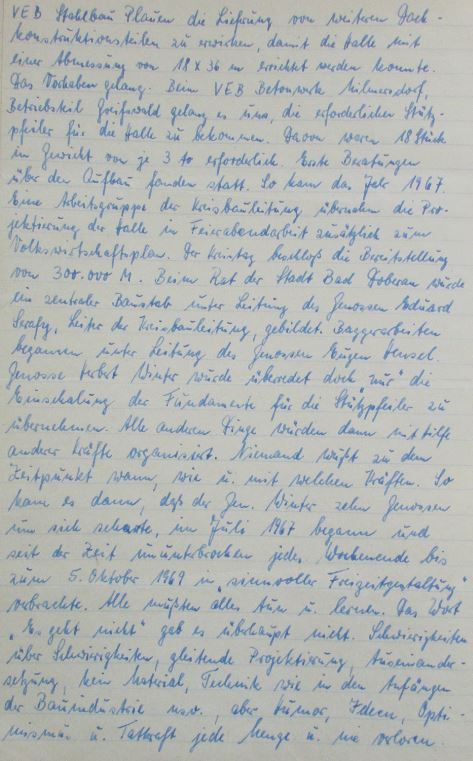 VEB Stahlbau Plauen die Lieferung von weiteren Dach-
konstruktionsteilen zu erwirken, damit die Halle mit
einer Abmessung von 18 x 36 m errichtet werden konnte.
Das Vorhaben gelang. Beim VEB Betonwerke Milmersdorf,
Betriebsteil Greifswald gelang es uns, die erforderlichen Stütz-
pfeiler für die Halle zu bekommen. Davon waren 18 Stück
im Gewicht von je 3 to erforderlich. Erste Beratungen
über den Aufbau fanden statt. So kam das Jahr 1967.
Eine Arbeitsgruppe der Kreisbauleitung übernahm die Pro-
jektierung der Halle in Feierabendarbeit zusätzlich zum
Volkswirtschaftsplan. Der Kreistag beschloß die Bereitstellung
von 300.000 M. Beim Rat der Stadt Bad Doberan wurde
ein zentraler Baustab unter Leitung des Genossen Eduard
Serafy, Leiter der Kreisbauleitung, gebildet. Baggerarbeiten
begannen, unter Leitung des Genossen Eugen Hensel.
Genosse Herbert Winter wurde überredet doch "nur" die
Einschalung der Fundamente für die Stützpfeiler zu
übernehmen. Alle anderen Dinge würden dann mit Hilfe
anderer Kräfte organisiert. Niemand wußt zu dem
Zeitpunkt wann, wie u. mit welchen Kräften. So
kam es dann, daß der Gen. Winter zehn Genossen
um sich scharte, im Juli 1967 begann und
seit der Zeit ununterbrochen jedes Wochenende bis
zum 5. Oktober 1969 in "sinnvoller Freizeitgestaltung"
verbrachte. Alle mußten alles tun u. lernen. Das Wort
"Es geht nicht" gab es überhaupt nicht. Schwierigkeiten
über Schwierigkeiten, gleitende Projektierung, Auseinander-
setzung, kein Material, Technik wie in den Anfängen
der Bauindustrie usw., aber Humor, Ideen, Opti-
mismus u. Tatkraft jede Menge u. nie verloren.